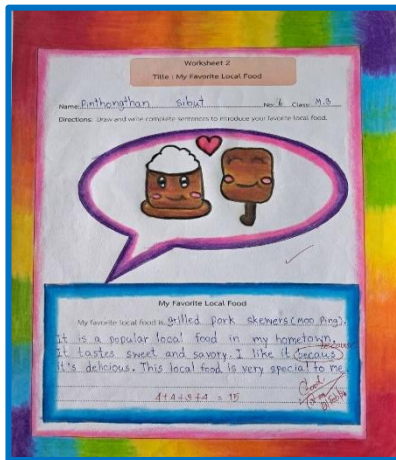 Worksheet 2
Title : My Favorite Local Food
Name: Pinthongthan Sibut No: 6 Class: M.3
Directions: Draw and write complete sentences to introduce your favorite local food.
My Favorite Local Food
My favorite local food is grilled pork skewers (moo ping).
It is a popular local food in my hometown.
because
It tastes sweet and savory. I like it becaus
it's delicious. This local food is very special to me.
Good
4+4+3+4 = 15